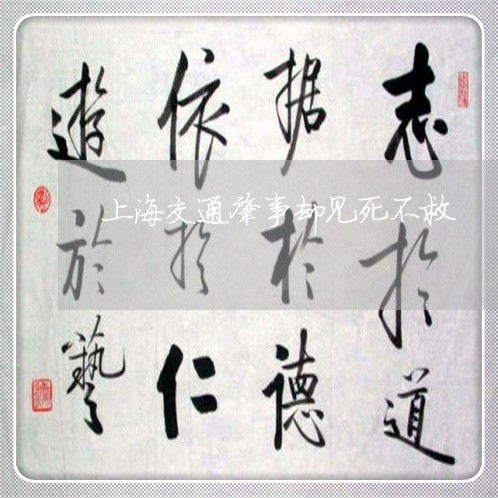 志於道
据於德
依於仁
遊於藝
上海交通肇事却见死不救